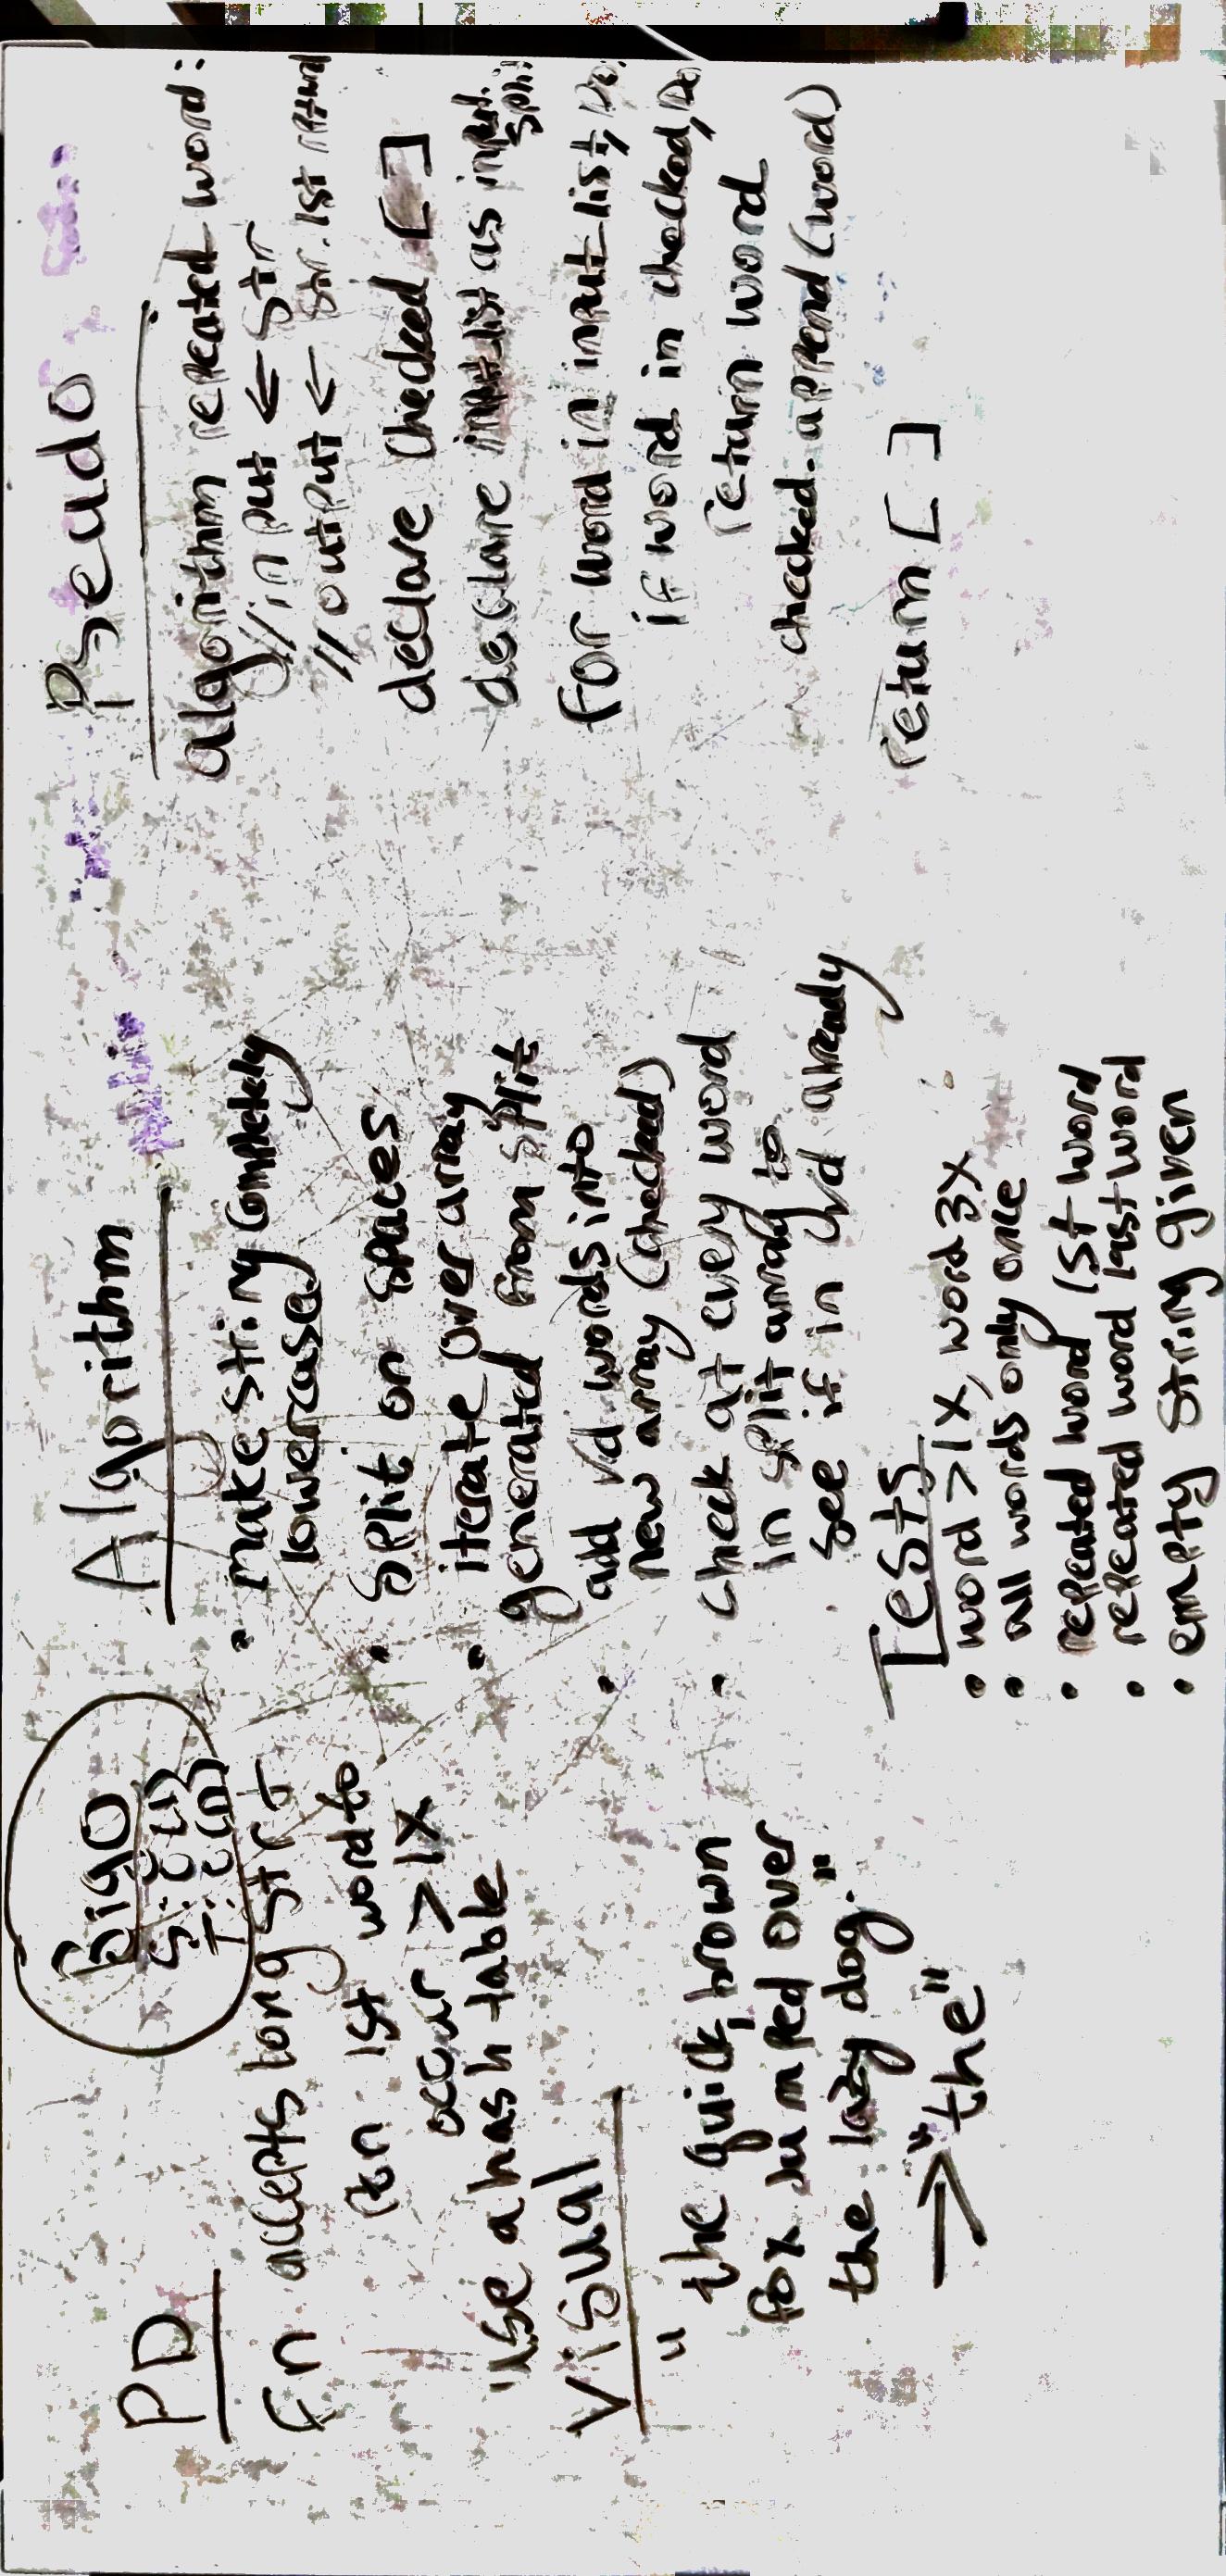 PD
Fn accepts long str &
rtn 1st word to
occur > 1x
use a hash table
Visual
" the quick brown
fox jumped over
the lazy dog."
→ "the"
BigO
S: O(1)
T: O(n)
Algorithm
• make string completely
lowercase
• split on spaces
• iterate over array
generated from split
• add √d words into
new array (checked)
• check at every word
in split array to
see if in √d already
Tests
• word > 1x, word 3x
• all words only once
• repeated word 1st word
• repeated word last word
• empty string given
Pseudo
algorithm repeated word:
// input ← str
// output ← str. 1st rptwd
declare checked [ ]
declare inputlist as input.split
for word in input list, Do:
if word in checked, Do
return word
checked.append(word)
return [ ]